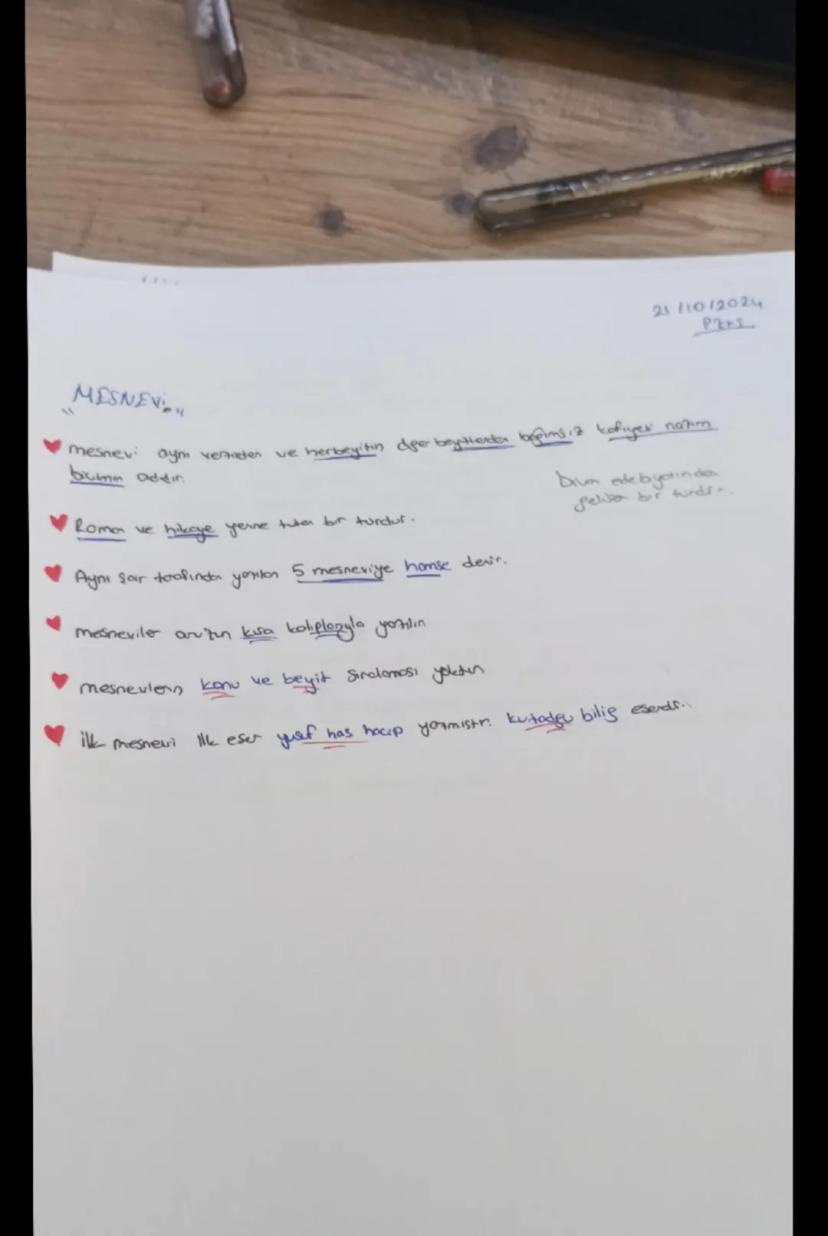 21/10/2024
PZTS
"MESNEVi"
mesnevi aynı vezinden ve herbeyitin diğer beyitlerden bağımsız kafiyeli nazım
biçimin adıdır.
Divan edebiyatında
gelişen bir türdür..
Roman ve hikaye yerine tutan bir türdür.
Aynı şair tarafından yazılan 5 mesneviye hamse denir.
mesneviler aruzun kısa kalıplarıyla yazılır
mesnevilerin konu ve beyit sıralaması yoktur
ilk mesnevi ilk eser yusuf has hacip yazmıştır. kutadgu bilig eseridir..